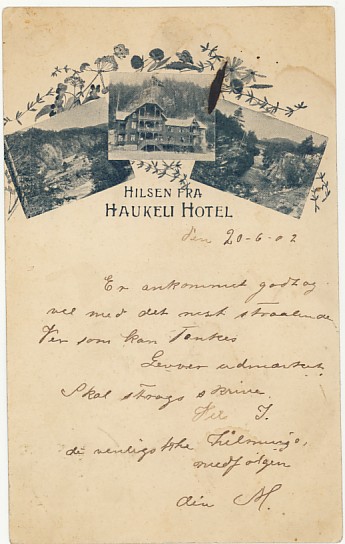 HILSEN FRA
HAUKELI HOTEL
Den 20-6-02
Er ankommet godt og
vel med det mest straalende
Veir som kan Tænkes
Lever udmærket.
Skal strags skrive.
Til I.
de venligste hilsninger,
medfølgen
din M.